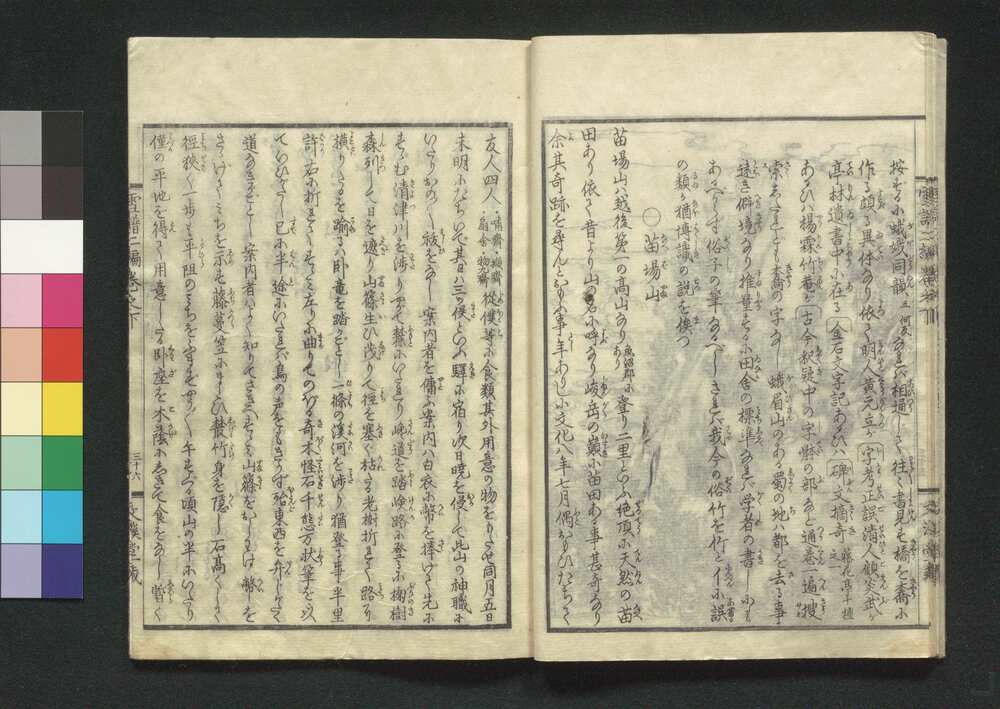 按ずるに蛾域同韻
なれば相通じて往々書見も橋を喬に
作る頗る異体なり依て明人黄元立が字考正誤清人顧炎武が
亭林遺書中に在る金石文字記あるひは碑文摘奇
あるひは楊霖竹菴が古今
中の字
の部など通巻遍捜
索すれども喬の字なし蛾眉山のある蜀の地は都を去る事
遠き僻境なり推量するに田舎の標準なれば学者の書しにも
あるべからず俗子の筆なるべしされば我今の俗竹を
誤
の類か猶博識の説を俟つ
○苗場山
苗場山は越後第一の高山なり魚沼郡にあり登り二里といふ絶頂に天然の苗
田あり依て昔より山の名に呼なり峻岳の巓に苗田ある事甚奇なり
余其奇跡を尋んとおもふ事年ありしに文化八年七月偶おもひたちて
友人四人
嘯齋
扇舎
物九齋
従僕等に食類其外用意の物をもたせ同月五日
未明にたちいで其日は三ツ俣といふ驛に宿り次日暁を侵して此山の神職に
いたりおの〳〵祓をなし案内者を傭ふ案内は白衣に幣を捧げて先に
すゝむ清津川を渉りやがて麓にいたれり巉道を踏嶮路に登るに掬樹
森列して日を遮り山篠生ひ茂りて径を塞ぐ枯たる老樹折れて路に
横りたるを踰るは臥竜を踏がごとし一條の渓河を渉り猶登る事半里
許右に折れてすゝみ左りに曲りてのぼる奇木怪石千態万状筆を以
ていひがたし已に半途にいたれば鳥の声をもきかず殆東西を弁じがたく
道なきがごとし案内者はよく知りてさきへすゝみ山篠をおしわけ幣を
さゝげてみちを示す藤蔓笠にまとひ叢竹身を隠し石高くして
径狭く一歩も平坦のみちをふまずやう〳〵午すぐる頃山の半にいたり
僅の平地を得て用意したる臥座を木蔭にしきて食をなし暫く
雪譜二編巻之下
三十六
文溪堂蔵